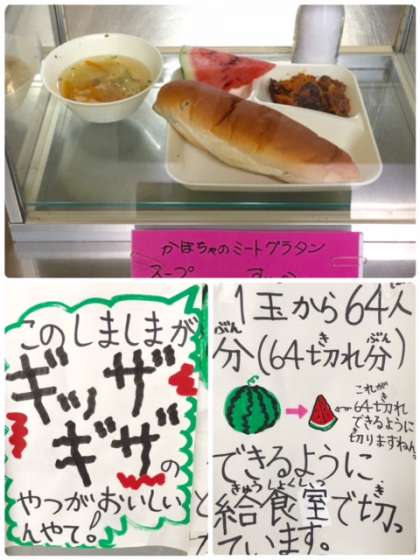 かぼちゃのミートグラタン
スープ
このしましまが
ギッザ
ギザの
やつがおいしい
んやて!
1玉から64人
分(64切れ分)
ぶん
き
ぶん
これが
64切れ
できるように
切りますねん。
できるように
きゅうしょくしつ
き
給食室で切っ
ています。